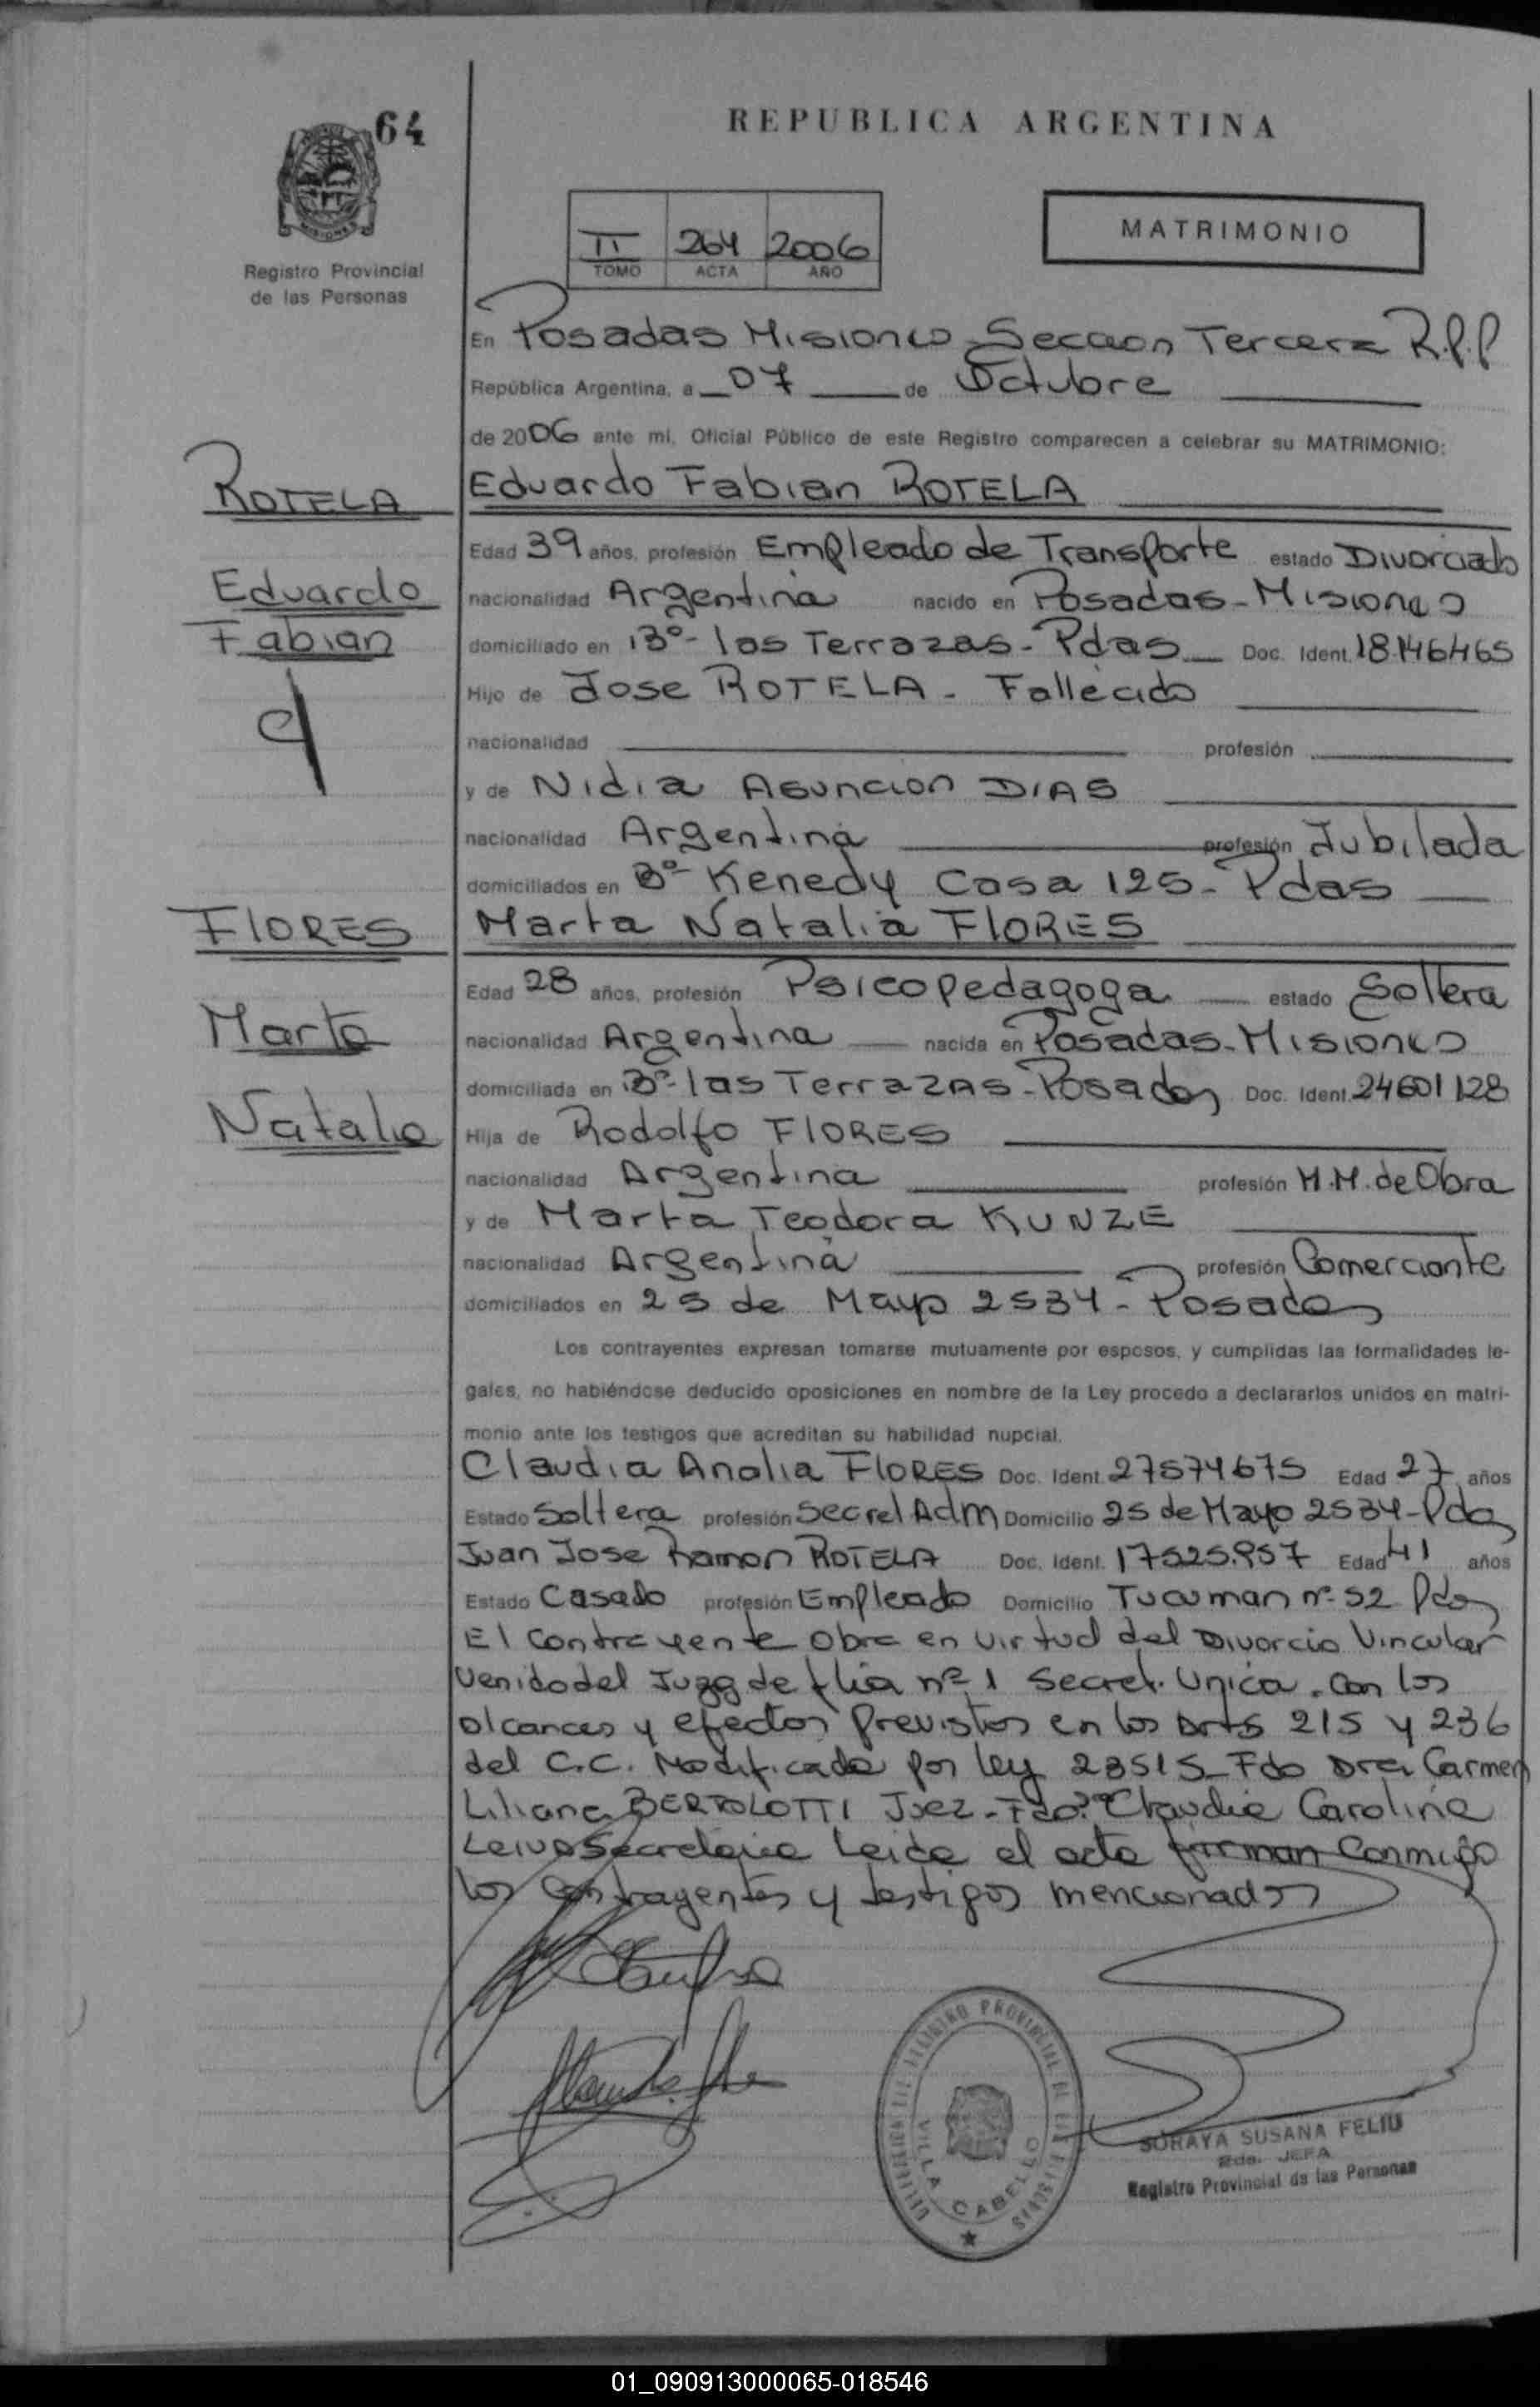 64
REPUBLICA ARGENTINA
MISIONES
Registro Provincial
de las Personas
II 264 2006
TOMO ACTA AÑO
MATRIMONIO
En Posadas Misiones Seccion Tercera R.P.P
República Argentina, a 07 de Octubre
de 2006 ante mi, Oficial Público de este Registro comparecen a celebrar su MATRIMONIO:
ROTELA
Eduardo
Fabian
y
Eduardo Fabian ROTELA
Edad 39 años, profesión Empleado de Transporte estado Divorciado
nacionalidad Argentina nacido en Posadas-Misiones
domiciliado en Bº-las Terrazas-Pdas Doc. Ident. 18.146465
Hijo de Jose ROTELA - Fallecido
nacionalidad profesión
y de Nidia Asuncion DIAS
nacionalidad Argentina profesión Jubilada
domiciliados en Bº Kenedy Casa 125-Pdas
FLORES
Marta
Natalia
Marta Natalia FLORES
Edad 28 años, profesión Psicopedagoga estado Soltera
nacionalidad Argentina nacida en Posadas-Misiones
domiciliada en Bº-las Terrazas-Posadas Doc. Ident. 24601128
Hija de Rodolfo FLORES
nacionalidad Argentina profesión M.M. de Obra
y de Marta Teodora KUNZE
nacionalidad Argentina profesión Comerciante
domiciliados en 25 de Mayo 2534-Posadas
Los contrayentes expresan tomarse mutuamente por esposos, y cumplidas las formalidades le-
gales, no habiéndose deducido oposiciones en nombre de la Ley procedo a declararlos unidos en matri-
monio ante los testigos que acreditan su habilidad nupcial.
Claudia Analia FLORES Doc. Ident. 27574675 Edad 27 años
Estado Soltera profesión Secret Adm Domicilio 25 de Mayo 2534-Pdas
Juan Jose Ramon ROTELA Doc. Ident. 17525.957 Edad 41 años
Estado Casado profesión Empleado Domicilio Tucuman nº 52 Pdas
El Contrayente obra en virtud del Divorcio Vincular
Venido del Juzg de flia nº 1 Secret. Unica. con los
alcances y efectos previstos en los Arts 215 y 236
del C.C. Modificado por ley 23515-Fdo Dra Carmen
Liliana BERTOLOTTI Juez-Fdo. Claudia Carolina
Leiva Secretaria Leida el acta firman Conmigo
los Contrayentes y testigos mencionados
DELEGACION DEL REGISTRO PROVINCIAL DE LAS PERSONAS
VILLA CABELLO
SORAYA SUSANA FELIU
2da. JEFA
Registro Provincial de las Personas
01_090913000065-018546